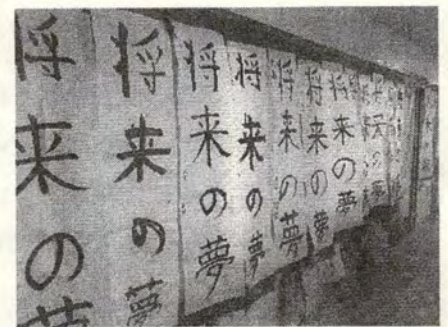 将来の夢
将来の夢
将来の夢
将来の夢
将来の夢
将来の夢
将来の夢